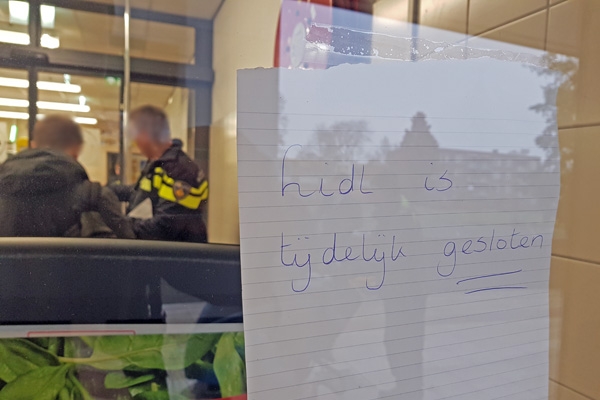 Lidl is
tijdelijk gesloten